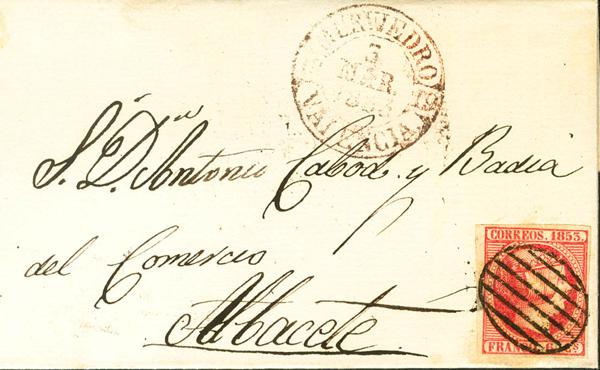 MURVIEDRO
3
MAR
VALENCIA
S.r D.n Antonio Cabod. y Badia
del Comercio
Albacete
CORREOS. 1853.
FRANCO. 6 C.s